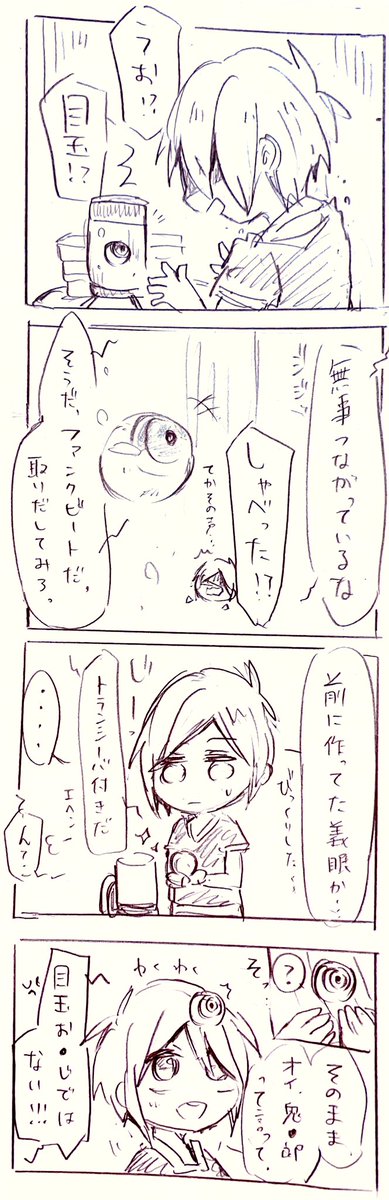 うお!?
目玉!?
無事
つながっているな
ジジジ
しゃべった!?
てかその声…
そうだ、ファンクビートだ、
取りだしてみろ。
前に作ってた義眼か…
びっくりした〜
じーっ
トランシーバ付きだ
エヘン
・・・・
ん?
そっ
?
そのまま
オイ、鬼●郎
って言って。
わくわく
目玉お●じでは
ない!!!